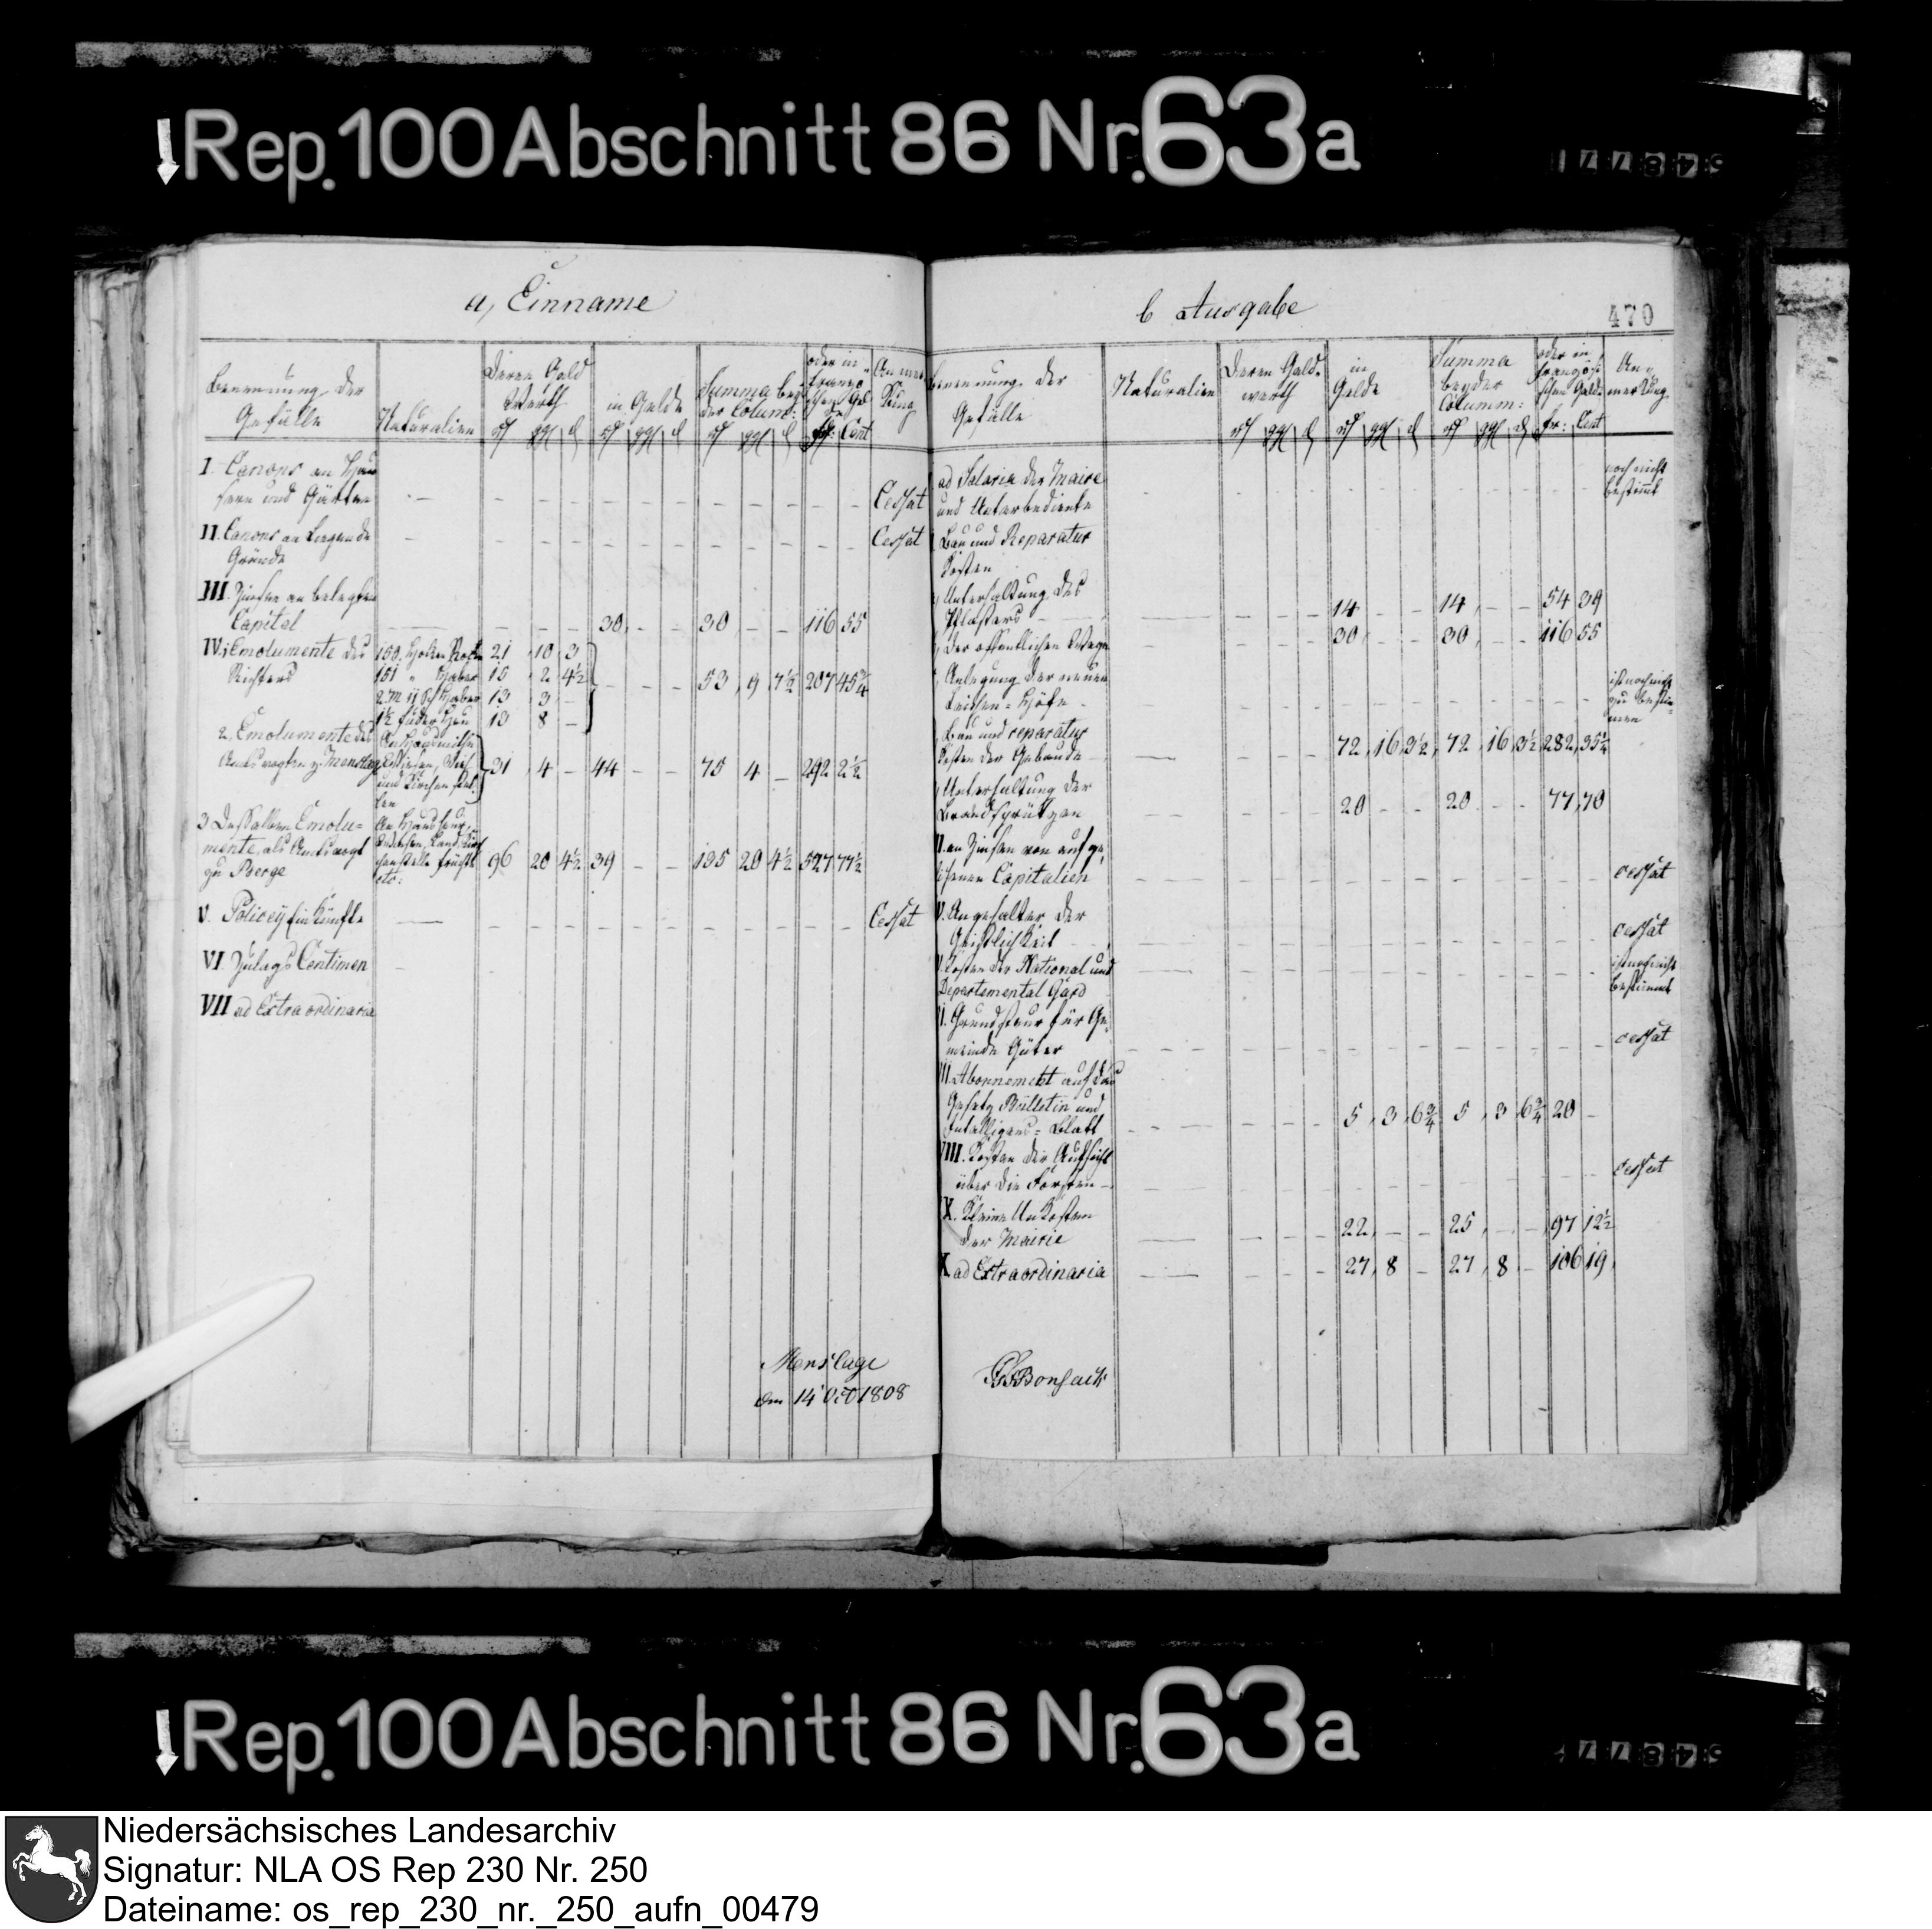 Rep. 100 Abschnitt 86 Nr. 63a
a, Einname
Benennung der Gefälle | Naturalien | Deren Geld Werth | in Gelde | Summa beyder Columm: | oder in französchen Gelde | Anmerkung
fr: Cent
I. Canons an Häu
sern und Gärten - Cessat
II. Canons an Liegende
Gründe - Cessat
III. Zinsen an belegten
Capital - 30 - - 30 - - 116 55
IV. 1 Emolumente des 150 Hocken Rocken 21 10 3
Richters 151 " Haber 15 2 4½ - - - 53 9 7½ 207 45¾
2 M 11 Sch Haber 13 3 -
1½ Fuder Heu 13 8 -
2, Emolumente des
Amtsvogten z. Menslage
und Kirchen
31 4 - 44 - - 75 4 - 292 2½
3 Desselben Emolu=
mente, als Amtsvogt
zu Berge
etc:
96 20 4½ 39 - - 135 20 4½ 527 77½
V. Policey Einkünfte - Cessat
VI Zulags Centimen -
VII ad Extraordinaria
Menslage
den 14 Oct 1808
b Ausgabe
470
Benennung der Gefälle | Naturalien | Deren Geld-werth | in Gelde | Summa beyder Columm: | oder in französischen Gelde | Anmerkung
fr: Cent
ad Salarien der Maire
und Unterbediente - noch nicht bestimt
Bau und Reparatur
Kosten
Unterhaltung des
Pflasters - 14 - - 14 - - 54 39
der offentlichen Wege 30 - - 30 - - 116 55
Anlegung der neuen
Leichen=Höfe - ist noch nicht zu bestimmen
Bau und reparatur
Kosten der Gebäude - 72 16 3½ 72 16 3½ 282 35¼
Unterhaltung der
Brandsprützen 20 - - 20 - - 77 70
an Zinsen von aufge
liehenen Capitalien - cessat
V. An gehalter der
Geistlichkeit - cessat
V. Kosten der National und
Departemental Gard - ist noch nicht bestimmt
VI. Grundsteur für Ge
meinde Güter - cessat
VII. Abonnement auf das
Gesetz Bülletin und
Intelligenz=Blatt - 5 3 6¾ 5 3 6¾ 20 -
VIII. Kosten der Aufsicht
über die Forsten - cessat
X. Kleine Unkosten
der Mairie - 22 - - 25 - - 97 12½
X ad Extraordinaria - 27 8 - 27 8 - 106 19
Rep. 100 Abschnitt 86 Nr. 63a
Niedersächsisches Landesarchiv
Signatur: NLA OS Rep 230 Nr. 250
Dateiname: os_rep_230_nr._250_aufn_00479